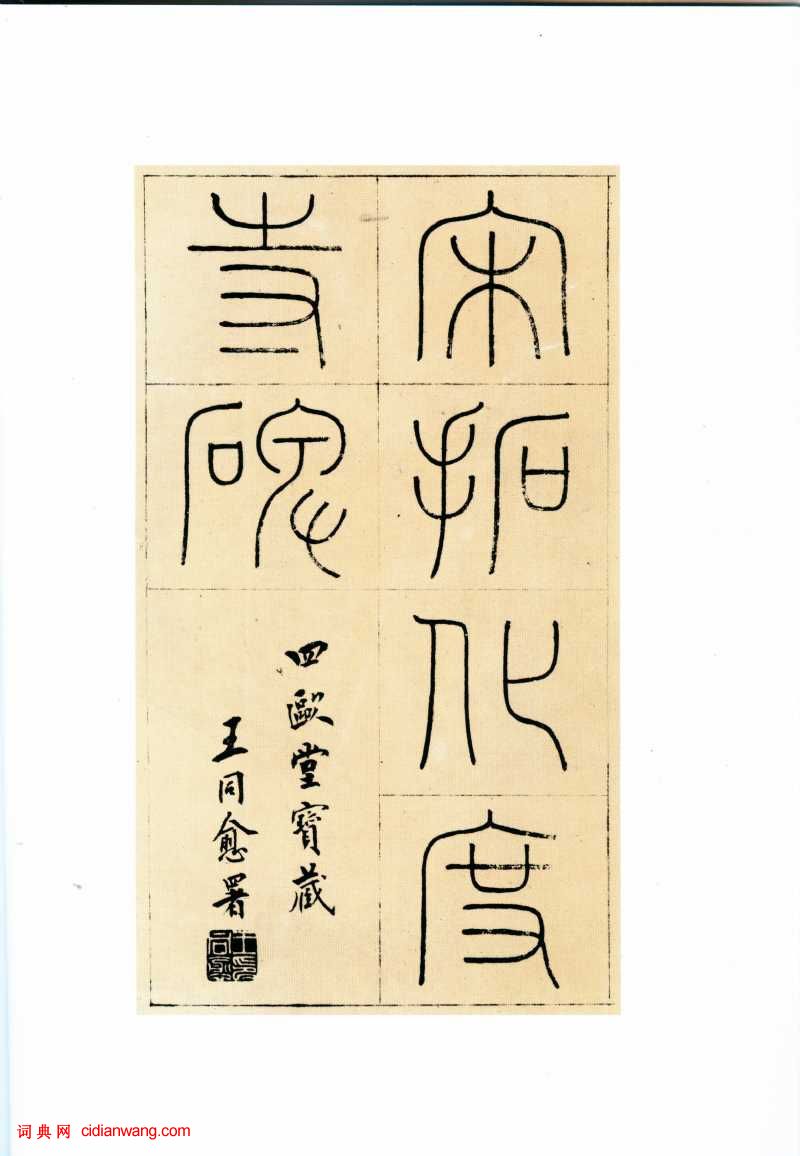 宋拓化度
寺碑
四歐堂寶藏
王同愈署
词典网 cidianwang.com